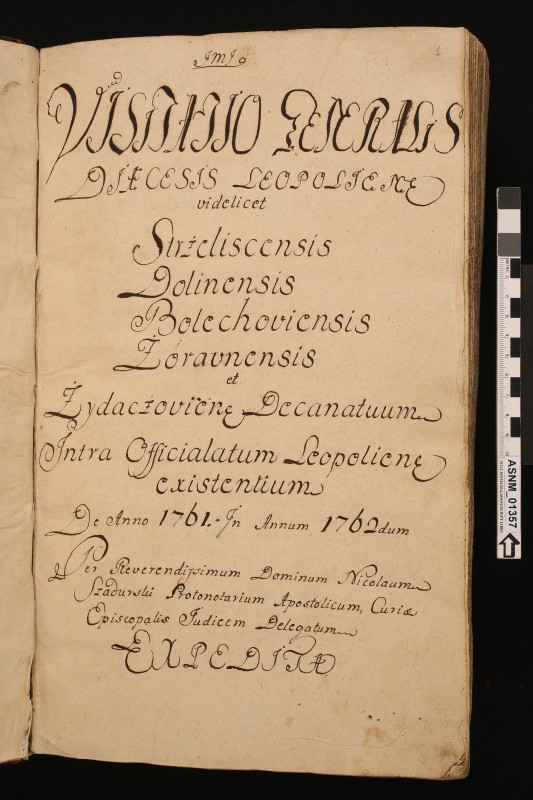 JMJ
1
VISITATIO GENERALIS
DIÆCESIS LEOPOLIENĘ
videlicet
Strżeliscensis
Dolinensis
Bolechoviensis
Żóravnensis
et
Żydaczovienę Decanatuum
Intra Officialatum Leopolienę
existentium
De Anno 1761.- In Annum 1762dum
Per Reverendissimum Dominum Nicolaum
Szadurski Protonotarium Apostolicum, Curiæ
Episcopalis Judicem Delegatum
EXPEDITA
ASNM_01357